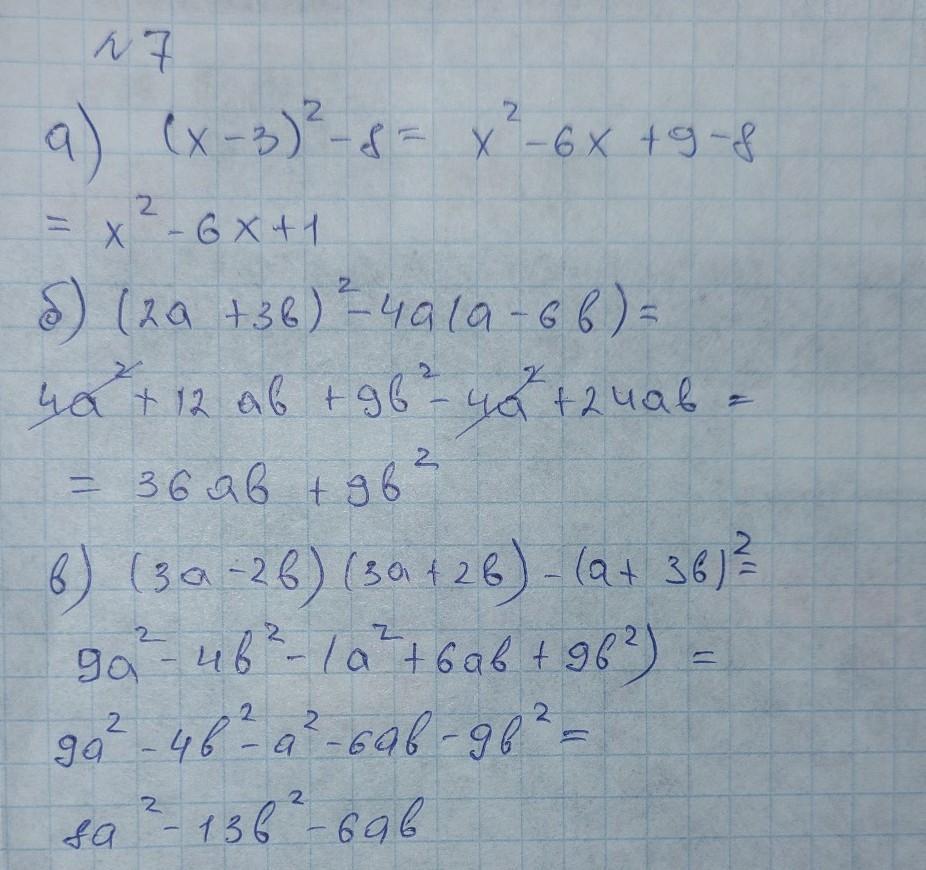 №7
а) (x-3)²-8= x²-6x+9-8
= x²-6x+1
б) (2a+3в)²-4a(a-6в)=
4a²+12aв+9в²-4a²+24aв=
= 36aв+9в²
в) (3a-2в)(3a+2в)-(a+3в)²=
9a²-4в²-(a²+6aв+9в²)=
9a²-4в²-a²-6aв-9в²=
8a²-13в²-6aв